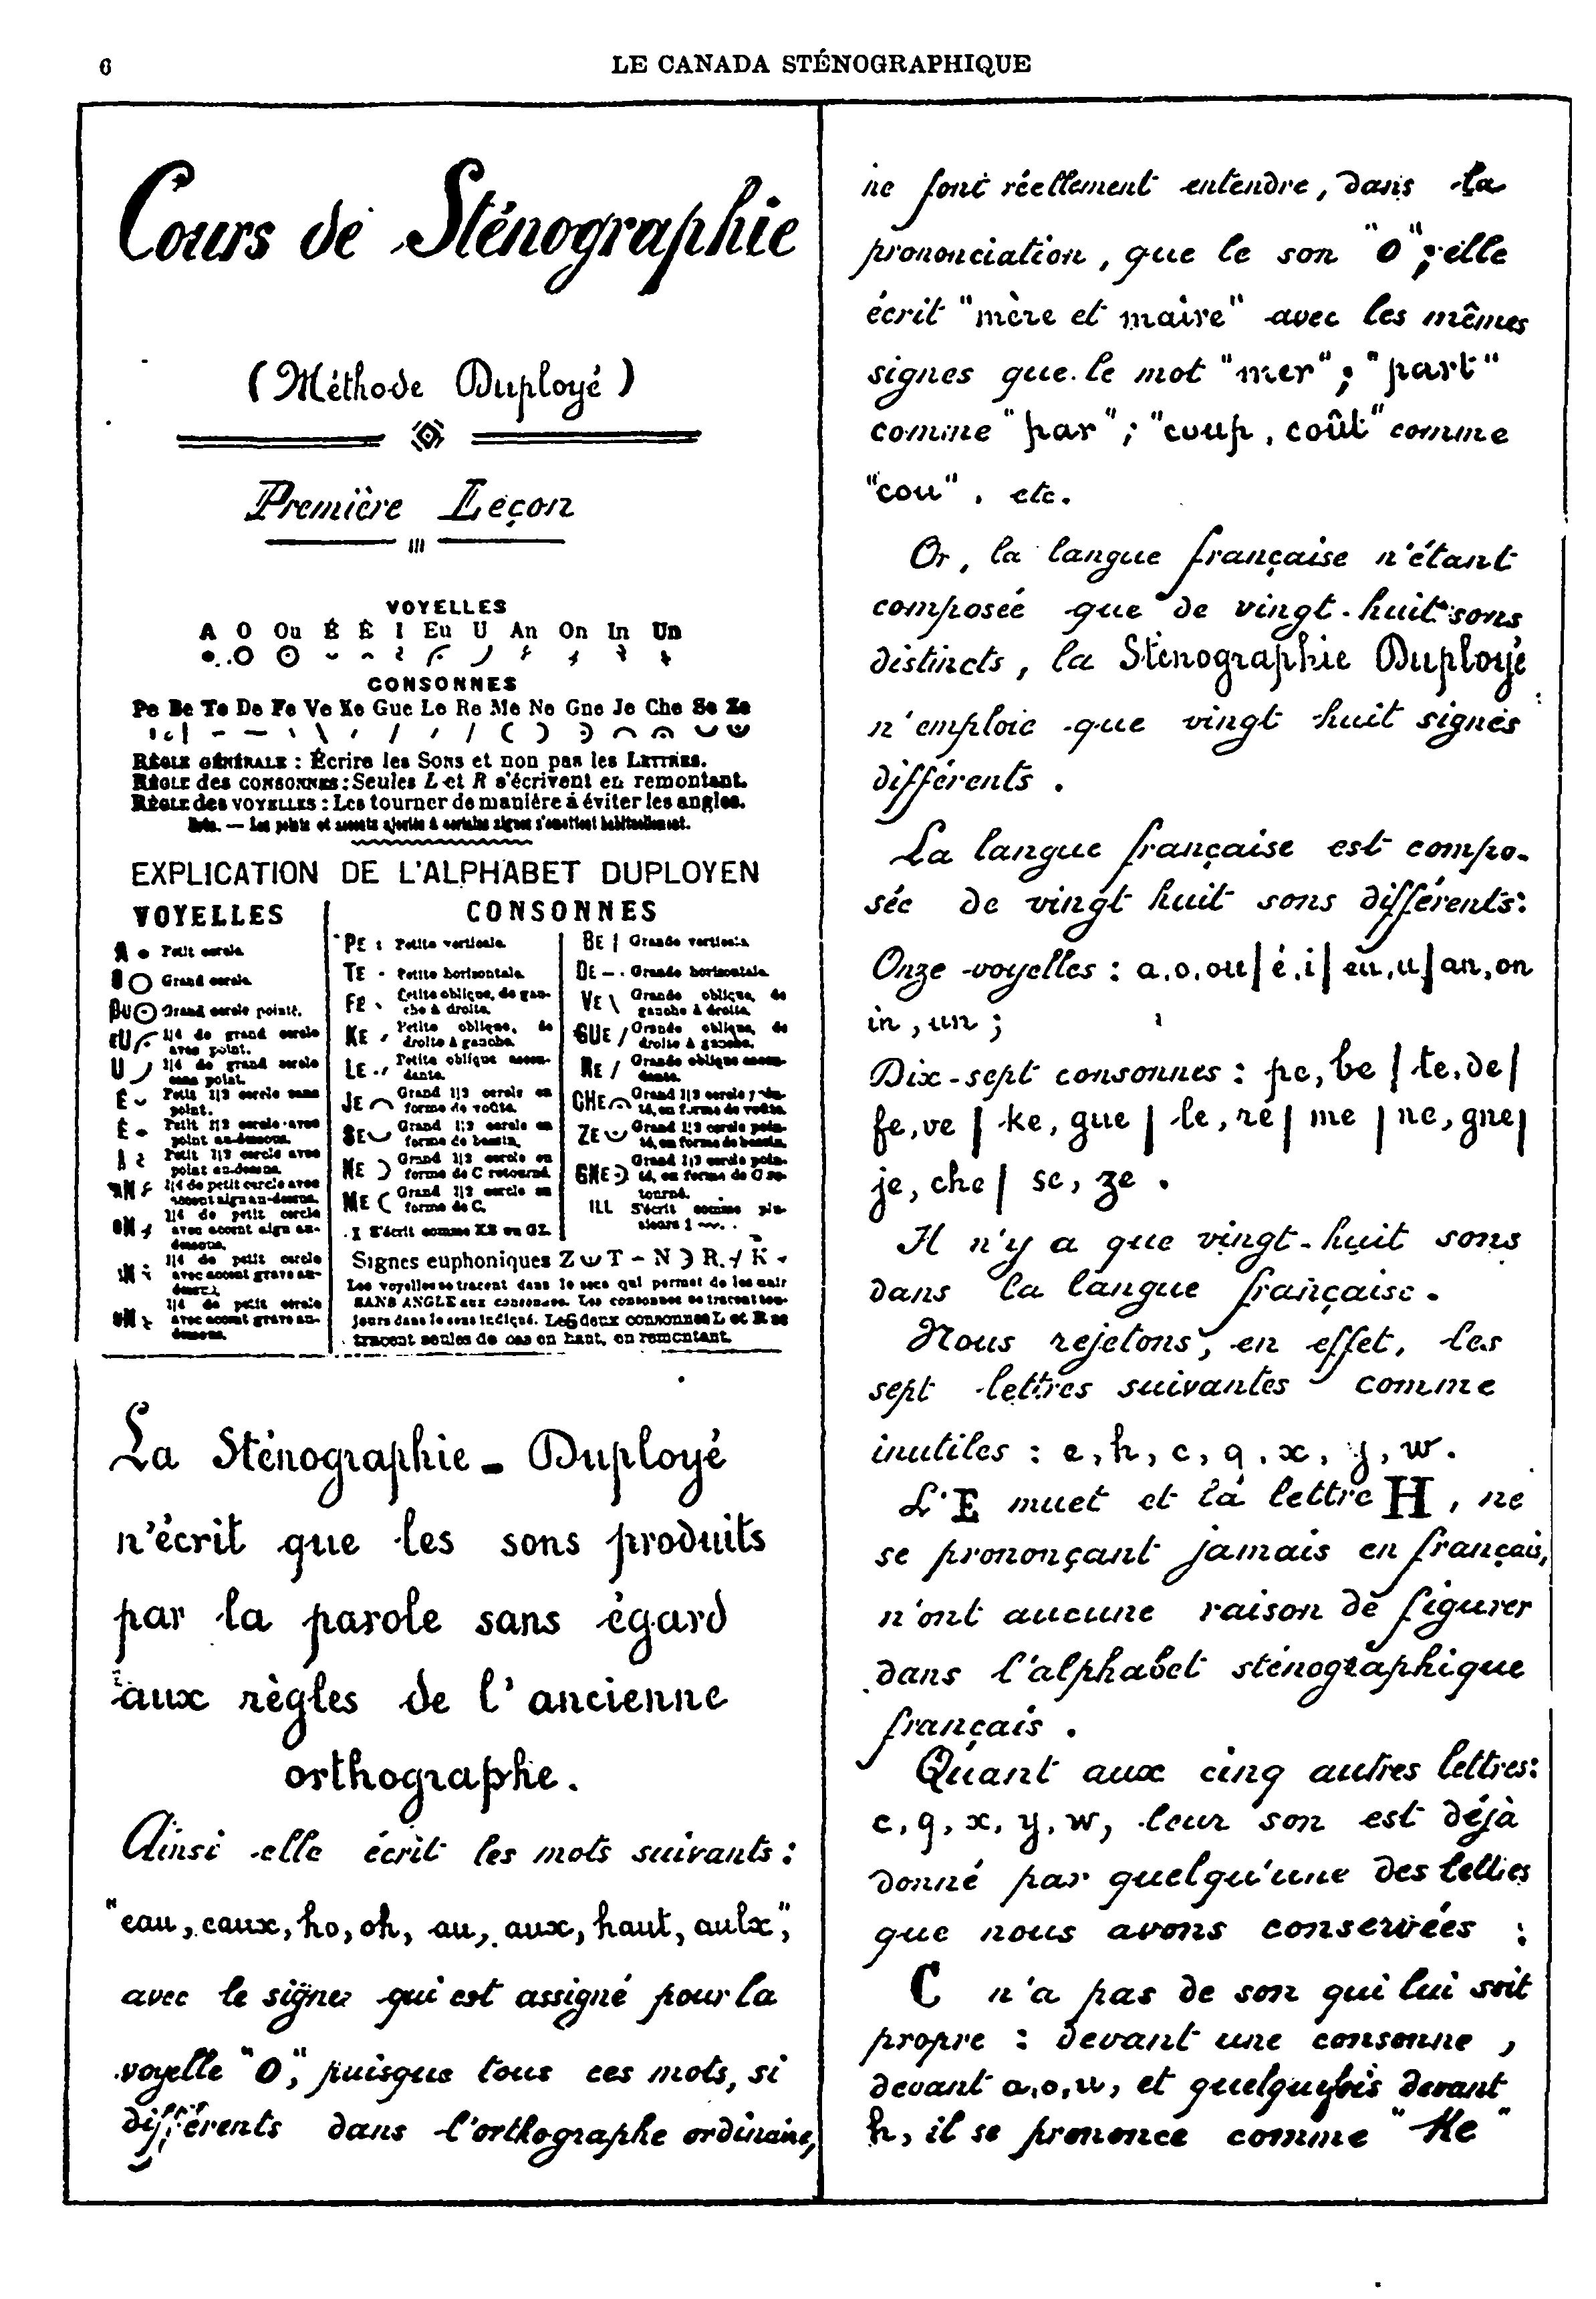 6
LE CANADA STÉNOGRAPHIQUE
Cours de Sténographie
(Méthode Duployé)
Première Leçon
VOYELLES
A O Ou É È I Eu U An On In Un
CONSONNES
Pe Be Te De Fe Ve Ke Gue Le Re Me Ne Gne Je Che Se Ze
RÈGLE GÉNÉRALE : Écrire les Sons et non pas les LETTRES.
RÈGLE des CONSONNES : Seules L et R s'écrivent en remontant.
RÈGLE des VOYELLES : Les tourner de manière à éviter les angles.
Nota. — Les points et accents ajoutés à certains signes s'omettent habituellement.
EXPLICATION DE L'ALPHABET DUPLOYEN
VOYELLES
A Petit cercle.
O Grand cercle.
OU Grand cercle pointé.
EU 1/4 de grand cercle
avec point.
U 1/4 de grand cercle
sans point.
É Petit 1/2 cercle sans
point.
È Petit 1/2 cercle avec
point au-dessous.
I Petit 1/2 cercle avec
point au-dessus.
AN 1/4 de petit cercle avec
accent aigu au-dessus.
ON 1/4 de petit cercle
avec accent aigu au-
dessous.
IN 1/4 de petit cercle
avec accent grave au-
dessus.
UN 1/4 de petit cercle
avec accent grave au-
dessous.
CONSONNES
PE Petite verticale.
TE Petite horizontale.
FE Petite oblique, de gau-
che à droite.
KE Petite oblique, de
droite à gauche.
LE Petite oblique ascen-
dante.
JE Grand 1/2 cercle en
forme de voûte.
SE Grand 1/2 cercle en
forme de bassin.
NE Grand 1/2 cercle en
forme de C retourné.
ME Grand 1/2 cercle en
forme de C.
X S'écrit comme KS ou GZ.
BE Grande verticale.
DE Grande horizontale.
VE Grande oblique, de
gauche à droite.
GUE Grande oblique, de
droite à gauche.
RE Grande oblique ascen-
dante.
CHE Grand 1/2 cercle poin-
té, en forme de voûte.
ZE Grand 1/2 cercle poin-
té, en forme de bassin.
GNE Grand 1/2 cercle poin-
té, en forme de C re-
tourné.
ILL S'écrit comme plu-
sieurs i
Signes euphoniques Z T N R K
Les voyelles se tracent dans le sens qui permet de les unir
SANS ANGLE aux consonnes. Les consonnes se tracent tou-
jours dans le sens indiqué. Les deux consonnes L et R se
tracent seules de bas en haut, en remontant.
La Sténographie - Duployé
n'écrit que les sons produits
par la parole sans égard
aux règles de l'ancienne
orthographe.
Ainsi elle écrit les mots suivants :
"eau, eaux, ho, oh, au, aux, haut, aulx",
avec le signe qui est assigné pour la
voyelle "O", puisque tous ces mots, si
différents dans l'orthographe ordinaire,
ne font réellement entendre, dans la
prononciation, que le son "O"; elle
écrit "mère et maire" avec les mêmes
signes que le mot "mer"; "part"
comme "par"; "coup, coût" comme
"cou", etc.
Or, la langue française n'étant
composée que de vingt-huit sons
distincts, la Sténographie Duployé
n'emploie que vingt huit signes
différents.
La langue française est compo-
sée de vingt huit sons différents:
Onze voyelles : a, o, ou | é, i | eu, u | an, on
in, un ;
Dix-sept consonnes : pe, be | te, de |
fe, ve | ke, gue | le, re | me | ne, gne |
je, che | se, ze.
Il n'y a que vingt-huit sons
dans la langue française.
Nous rejetons, en effet, les
sept lettres suivantes comme
inutiles : e, h, c, q, x, y, w.
L'E muet et la lettre H, ne
se prononçant jamais en français,
n'ont aucune raison de figurer
dans l'alphabet sténographique
français.
Quant aux cinq autres lettres:
c, q, x, y, w, leur son est déjà
donné par quelqu'une des lettres
que nous avons conservées :
C n'a pas de son qui lui soit
propre : devant une consonne,
devant a, o, u, et quelquefois devant
h, il se prononce comme "Ke"